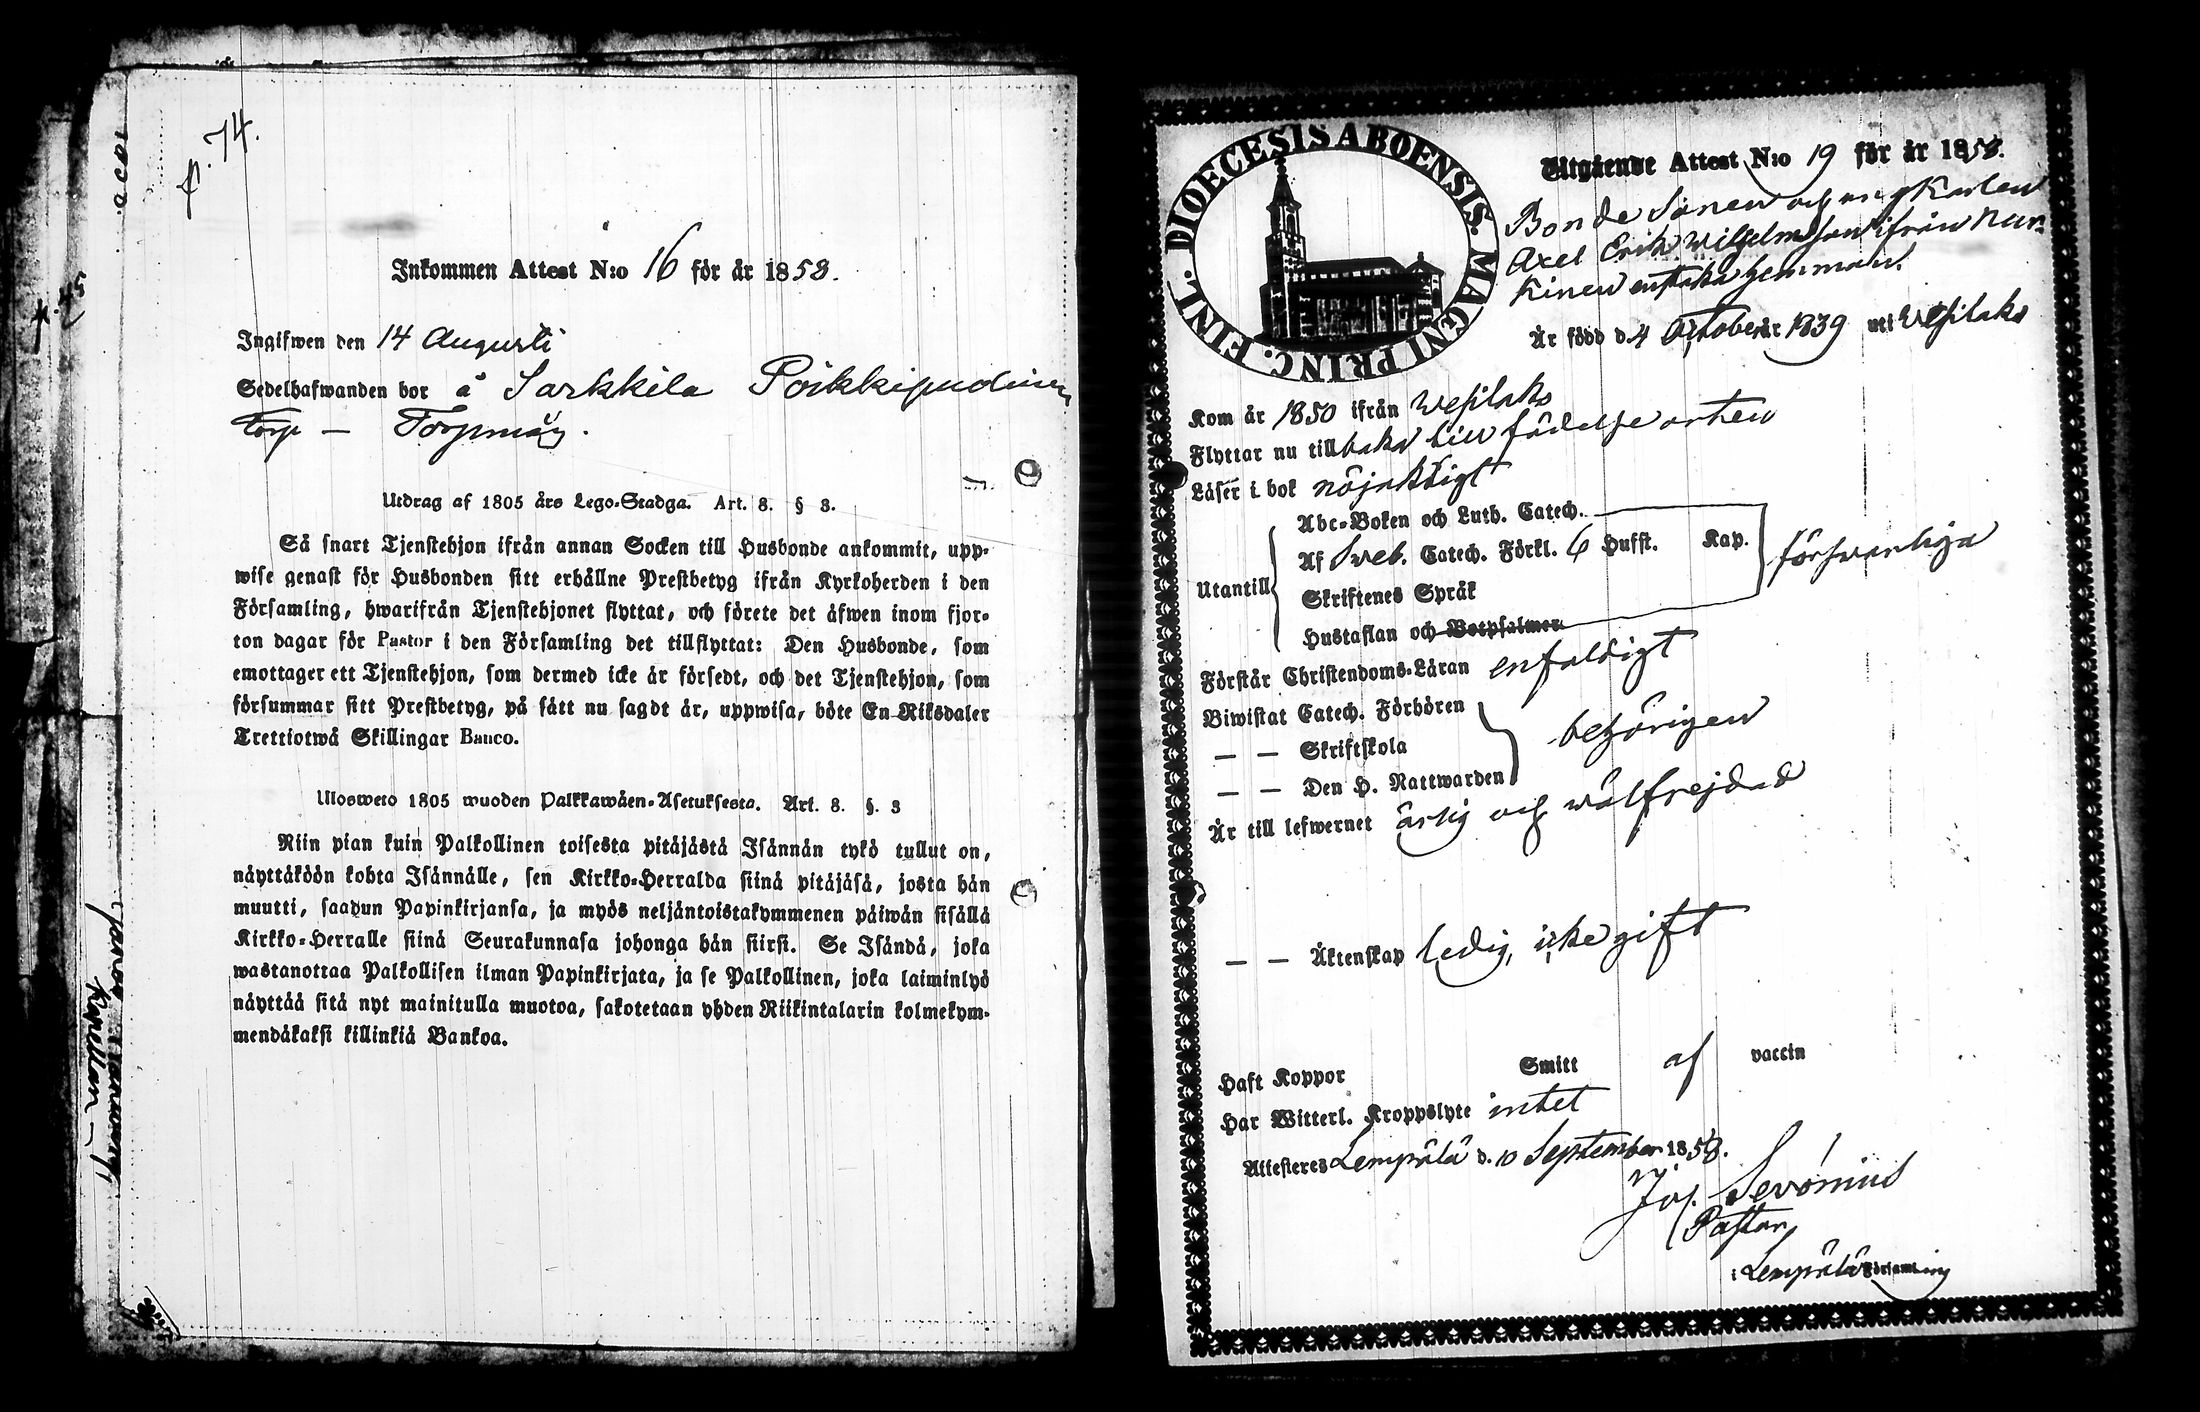 p. 74.
Inkommen Attest N:o 16 för år 1858.
Ingifwen den 14 Augusti
Sedelhafwanden bor å Sarkkila
Torp — Torpmäg.
Utdrag af 1805 års Lego-Stadga. Art. 8. § 3.
Så snart Tjenstehjon ifrån annan Socken till Husbonde ankommit, upp-
wise genast för Husbonden sitt erhållne Prestbetyg ifrån Kyrkoherden i den
Församling, hwarifrån Tjenstehjonet flyttat, och förete det äfwen inom fjor-
ton dagar för Pastor i den Församling det tillflyttat: Den Husbonde, som
emottager ett Tjenstehjon, som dermed icke är försedt, och det Tjenstehjon, som
försummar sitt Prestbetyg, på sätt nu sagdt är, uppwisa, böte En Riksdaler
Trettiotwå Skillingar Banco.
Ulosweto 1805 wuoden Palkkawäen-Asetuksesta. Art. 8. §. 3
Niin pian kuin Palkollinen toisesta pitäjästä Isännän tykö tullut on,
näyttäköön kohta Isännälle, sen Kirkko-Herralda siinä pitäjäsä, josta hän
muutti, saadun Papinkirjansa, ja myös neljäntoistakymmenen päiwän sisällä
Kirkko-Herralle siinä Seurakunnasa johonga hän siirsi. Se Isändä, joka
wastanottaa Palkollisen ilman Papinkirjata, ja se Palkollinen, joka laiminlyö
näyttää sitä nyt mainitulla muotoa, sakotetaan yhden Riikintalarin kolmekym-
mendäkaksi killinkiä Bankoa.
DIOECESIS ABOENSIS. MAGNI PRINC. FINL.
Utgående Attest N:o 19 för år 1858.
Bonde Sonen och ung Karlen
Axel Erik Wilhelmsson ifrån Nur-
kinen enstaka hemman.
Är född d. 4 October år 1839 uti Wesilaks
Kom år 1850 ifrån Wesilaks
Flyttar nu tillbaka till födelse orten
Läser i bok nöjaktigt
Utantill
Abc-Boken och Luth. Catech.
Af Sveb. Catech. Förkl. 6 Hufst. Kap.
Skriftenes Språk
Hustaflan och Botpsalmer
försvarliga
Förstår Christendoms-Läran enfaldigt
Biwistat Catech. Förhören
— — Skriftskola
— — Den H. Nattwarden
behörigen
Är till lefwernet ärlig och wälfrejdad
— — Äktenskap ledig, icke gift
Haft Koppor Smitt af vaccin
Har Witterl. Kroppslyte intet
Attesteres Lempälä d. 10 September 1858.
Jos. Sevonius
Pastor
i Lempälä Församling